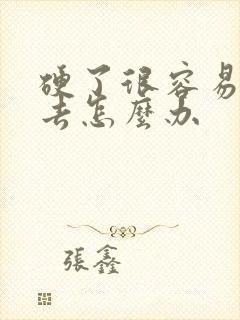 硬了很容易
去怎麼办
張鑫